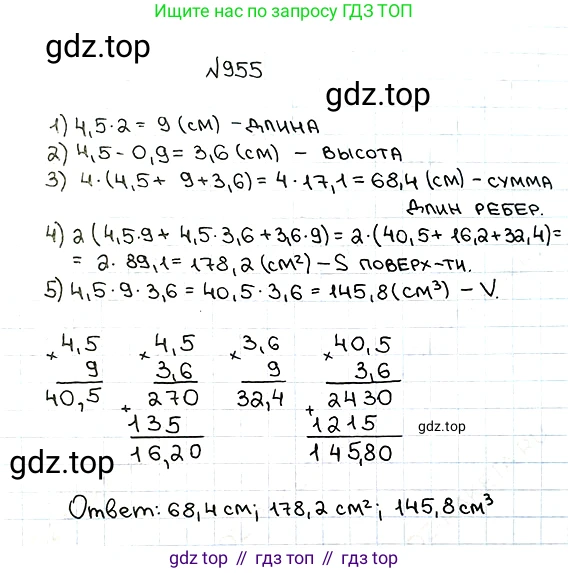 Ищите нас по запросу ГДЗ ТОП
gdz.top
№955
gdz.top
1) 4,5·2 = 9 (см) - длина
2) 4,5 - 0,9 = 3,6 (см) - высота
3) 4·(4,5 + 9 + 3,6) = 4·17,1 = 68,4 (см) - сумма
длин ребер.
4) 2 (4,5·9 + 4,5·3,6 + 3,6·9) = 2·(40,5 + 16,2 + 32,4) =
= 2·89,1 = 178,2 (см²) - S поверх-ти.
5) 4,5·9·3,6 = 40,5·3,6 = 145,8 (см³) - V.
× 4,5 × 4,5 × 3,6 × 40,5
9 3,6 9 3,6
40,5 + 270 32,4 + 2430
135 1215
16,20 145,80
gdz.top
gdz.top
Ответ: 68,4 см; 178,2 см²; 145,8 см³
gdz.top // гдз топ // гдз.топ